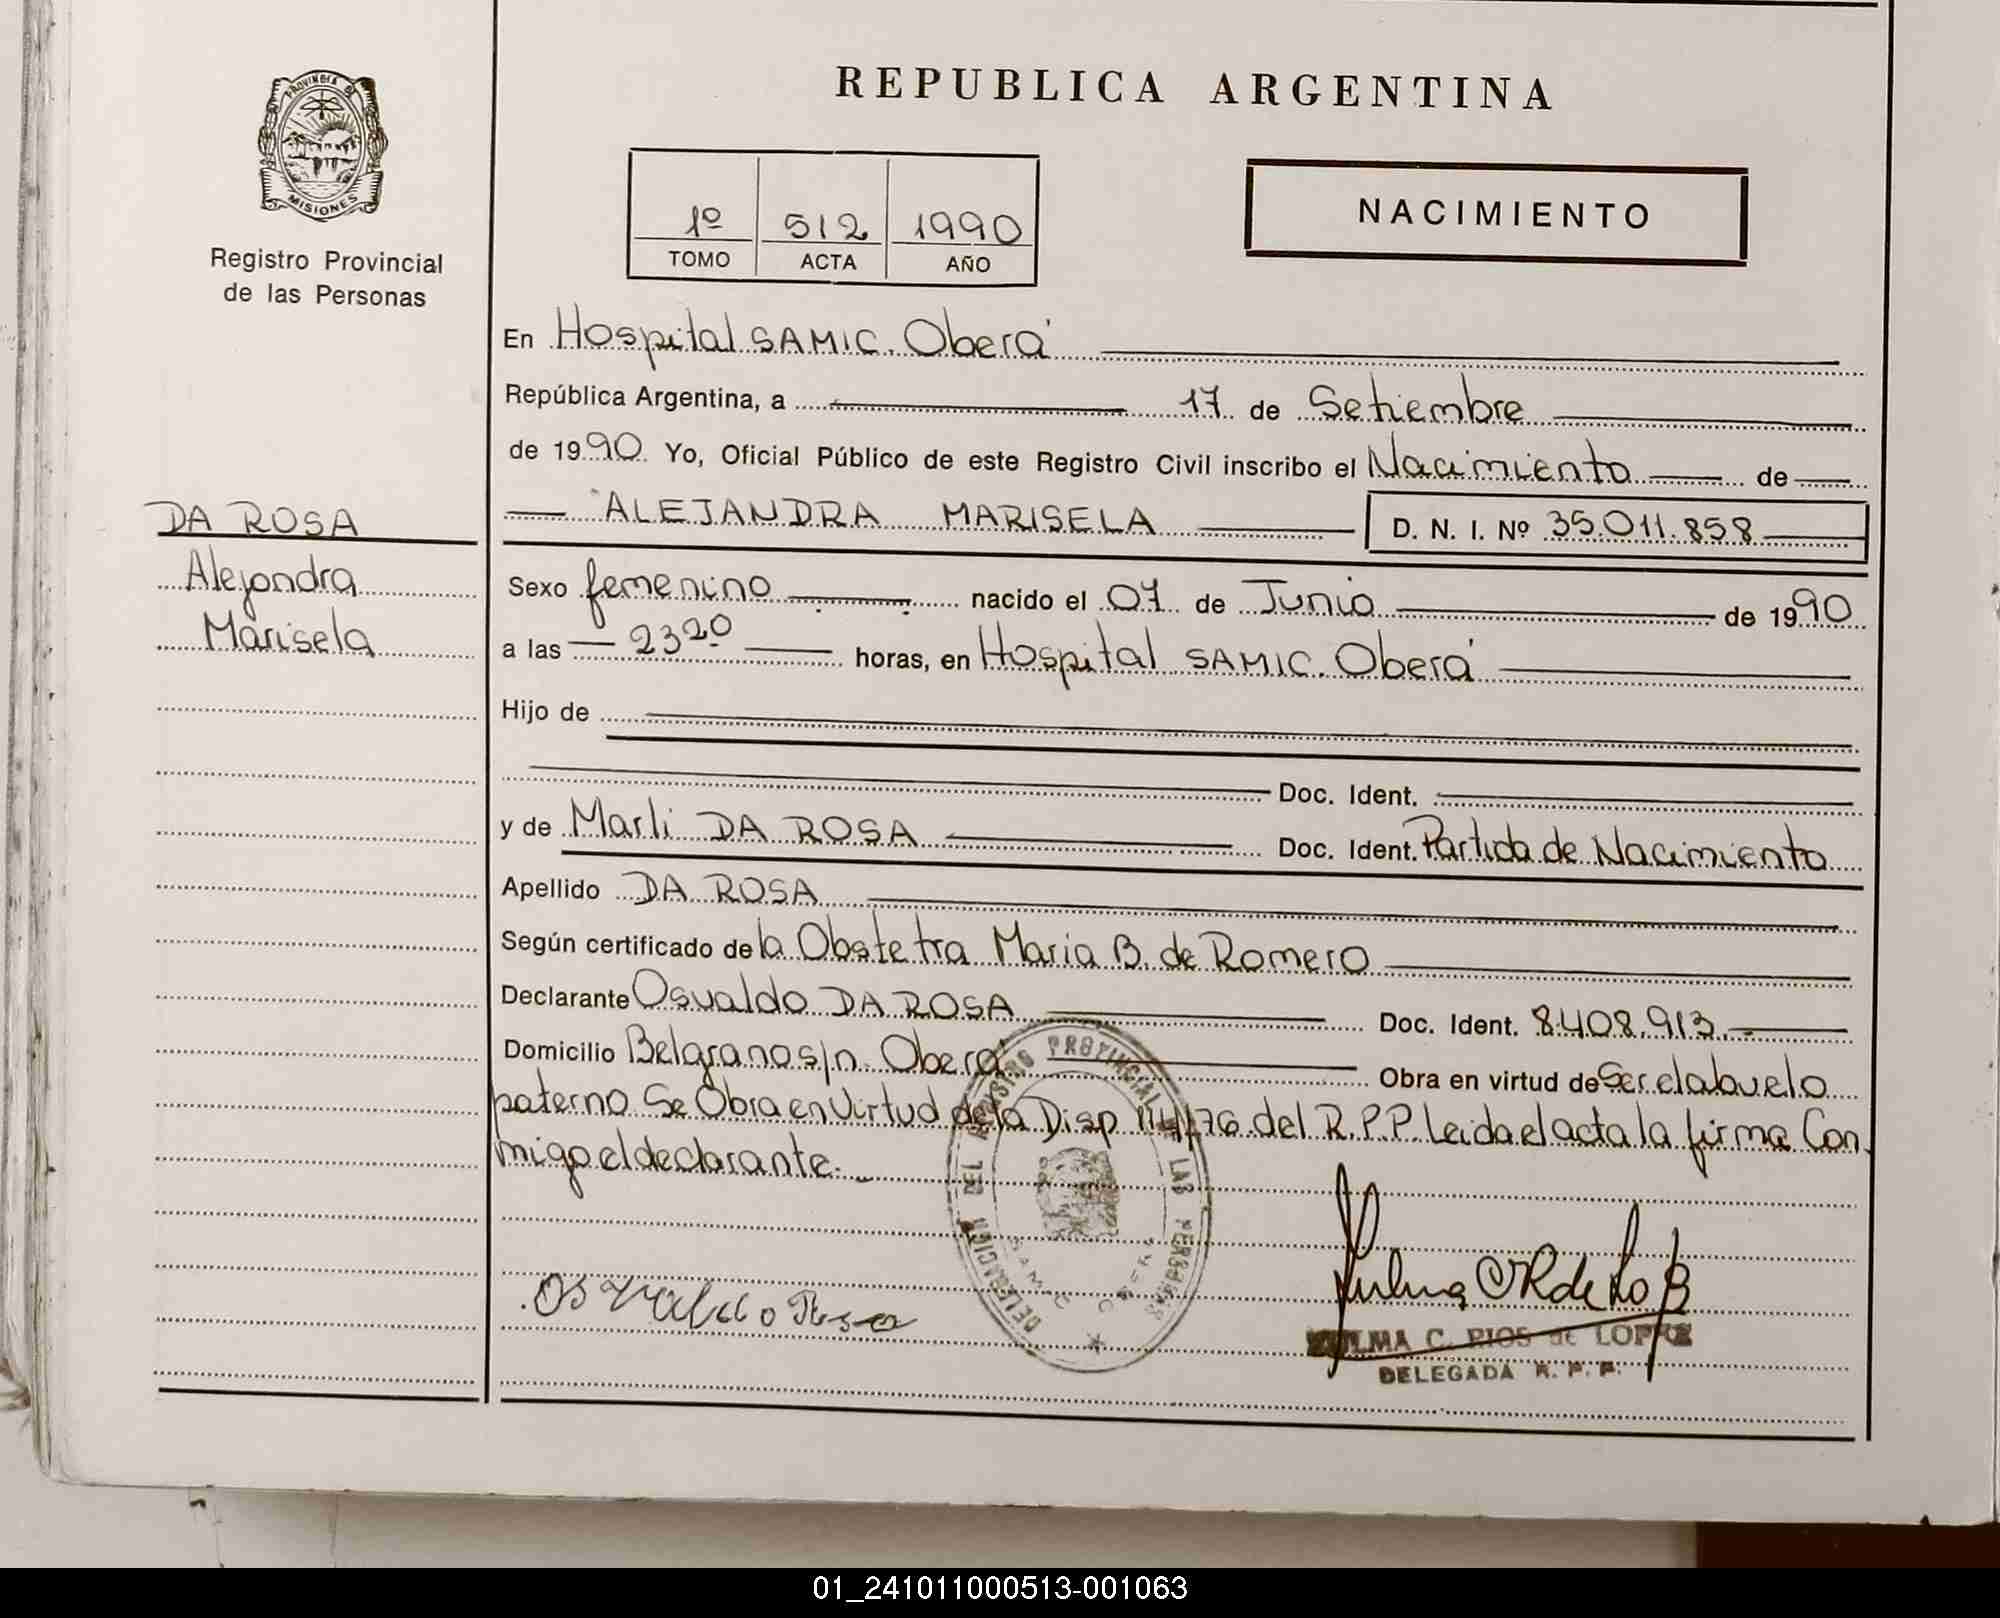 PROVINCIA DE
MISIONES
Registro Provincial
de las Personas
DA ROSA
Alejandra
Marisela
REPUBLICA ARGENTINA
1º 512 1990
TOMO ACTA AÑO
NACIMIENTO
En Hospital SAMIC. Oberá
República Argentina, a 17 de Setiembre
de 1990 Yo, Oficial Público de este Registro Civil inscribo el Nacimiento de
ALEJANDRA MARISELA D. N. I. Nº 35.011.858
Sexo femenino nacido el 07 de Junio de 1990
a las 23 20 horas, en Hospital SAMIC. Oberá
Hijo de
Doc. Ident.
y de Marli DA ROSA Doc. Ident. Partida de Nacimiento
Apellido DA ROSA
Según certificado de la Obstetra Maria B. de Romero
Declarante Osvaldo DA ROSA Doc. Ident. 8.408.913
Domicilio Belgrano s/n. Oberá Obra en virtud de Ser el abuelo
paterno Se Obra en Virtud de la Disp 114/76 del R.P.P. Leida el acta la firma Con
migo el declarante.
DELEGACION DEL REGISTRO PROVINCIAL DE LAS PERSONAS
Osvaldo Rosa
ZULMA C. RIOS de LOPEZ
DELEGADA R. P. P.
01_241011000513-001063